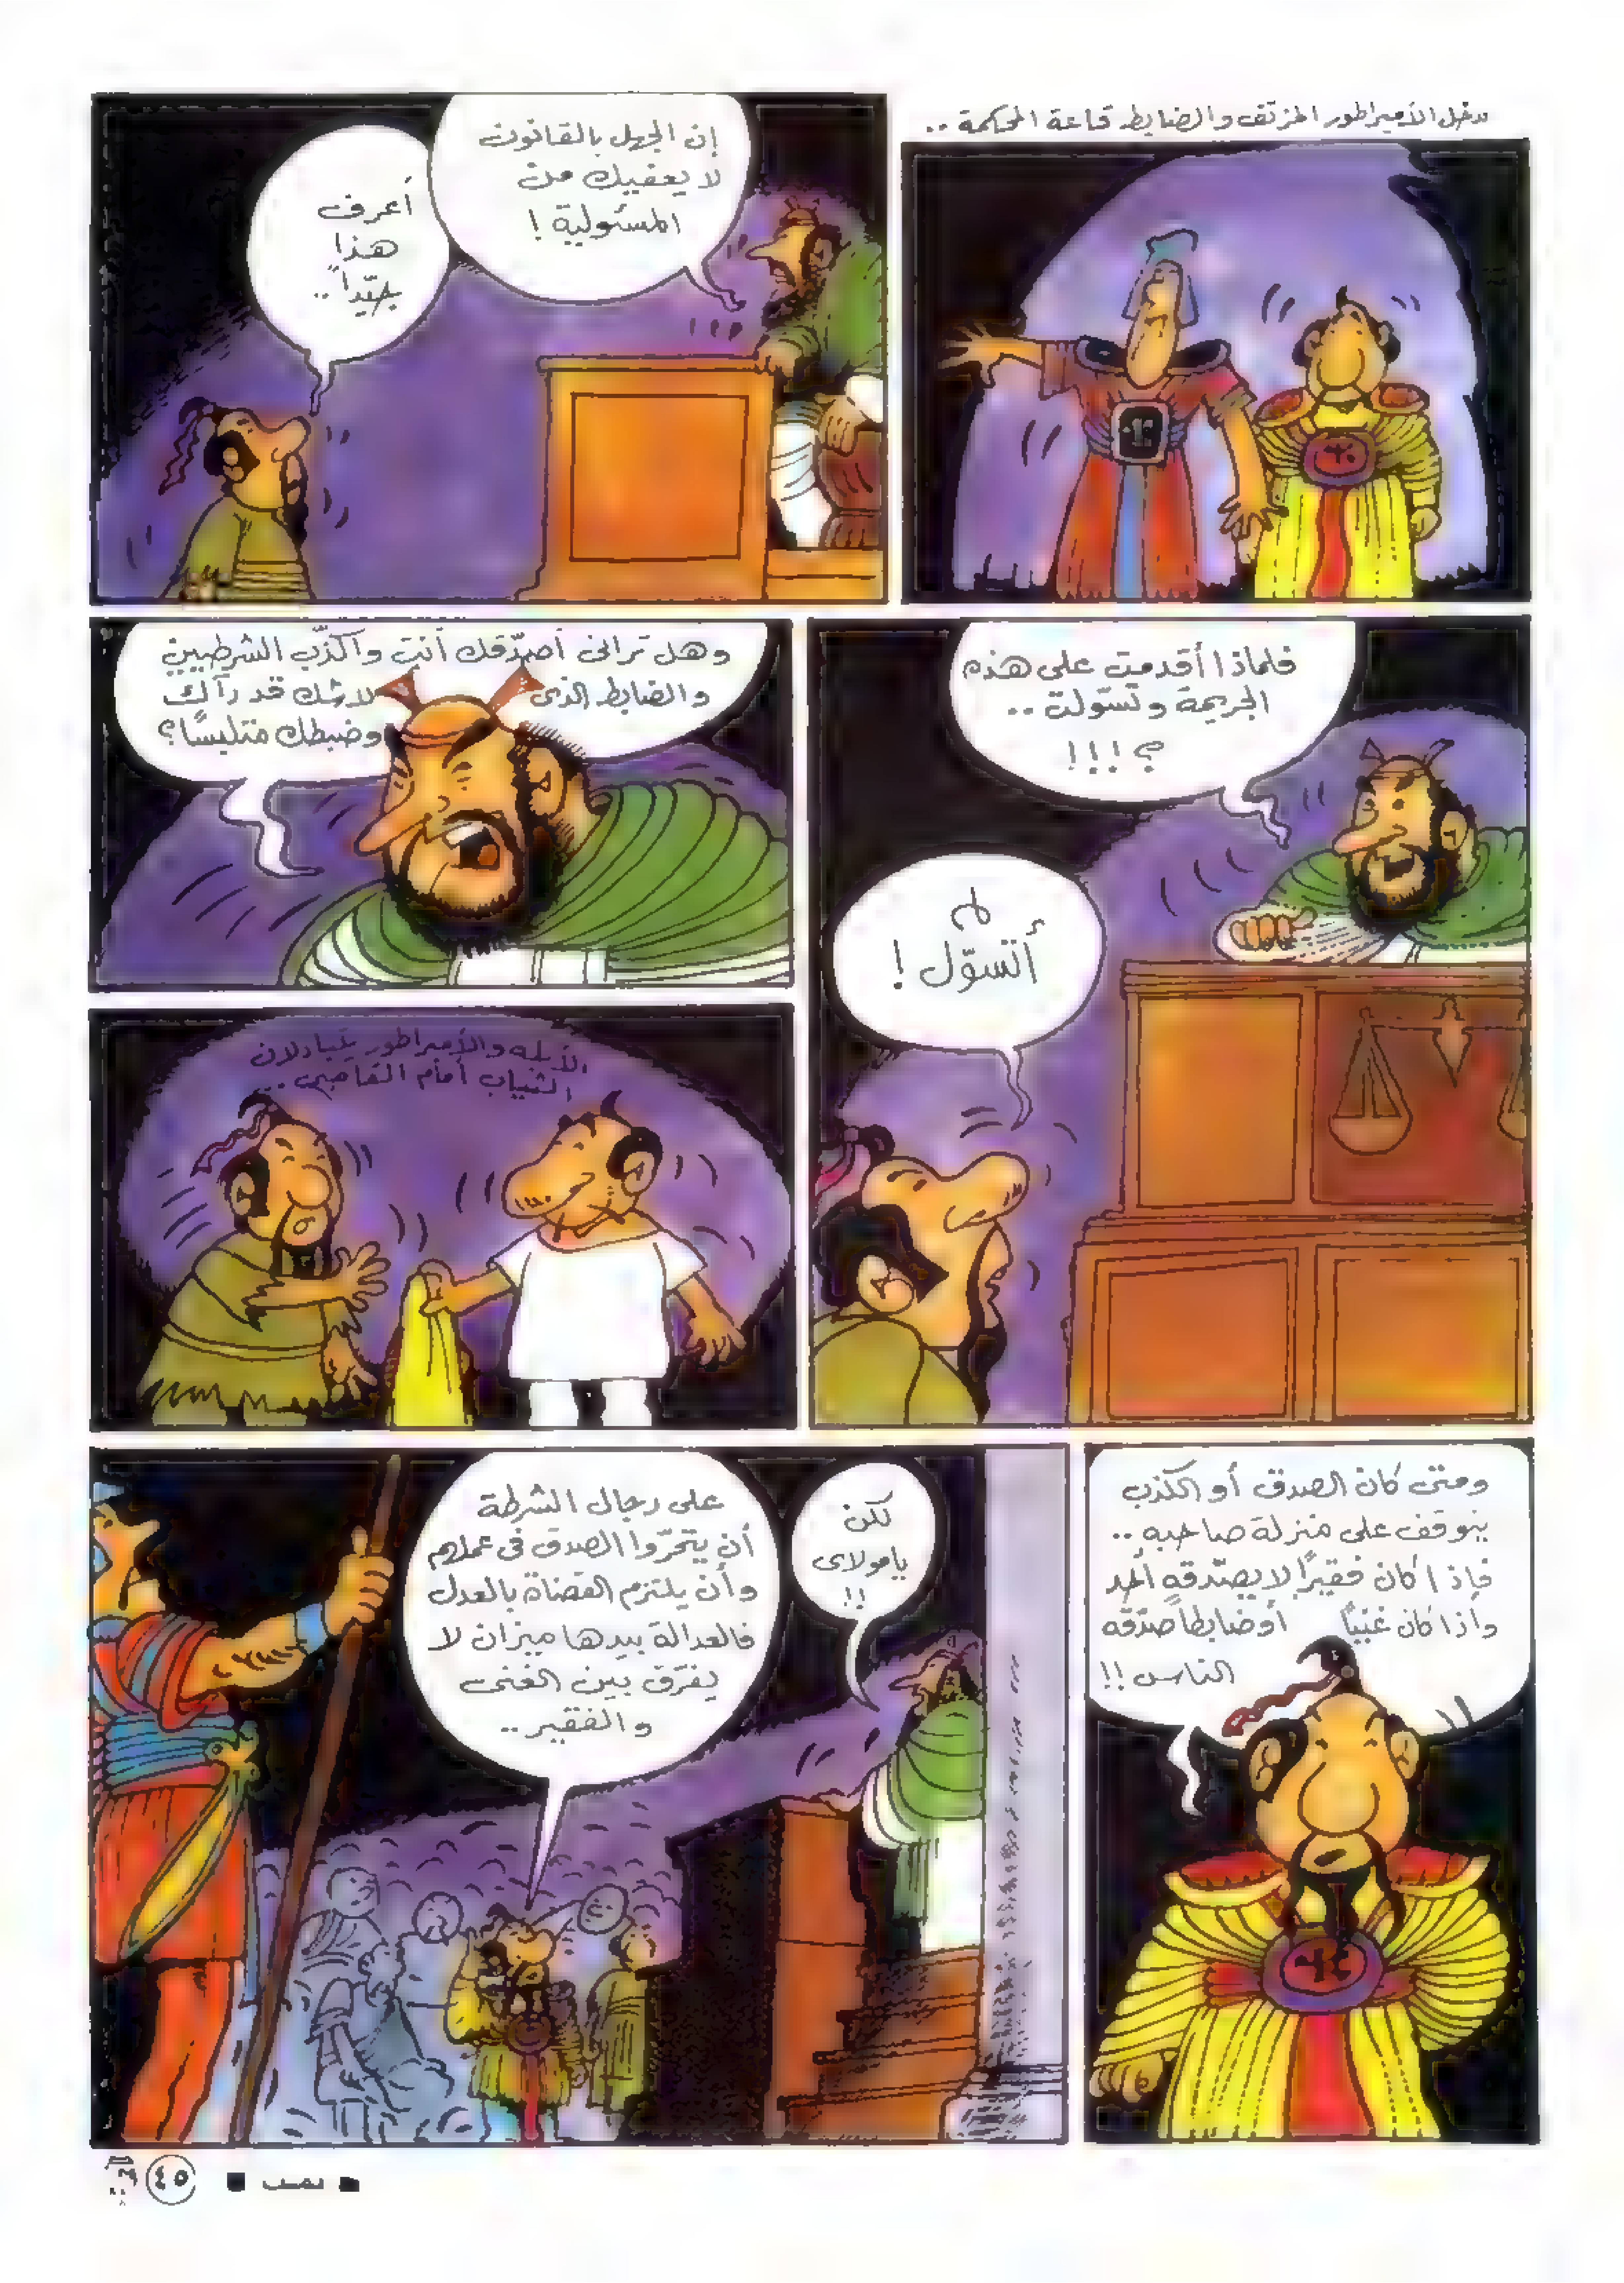 دخل الأمبراطور المزيّف والضابط قاعة المحكمة ..
إن الجهل بالقانون
لا يعفيك من
المسئولية !
أعرف
هذا
جيّداً ..
فلماذا أقدمت على هذه
الجريمة وتسوّلت ..
؟ ! ! !
لم
أتسوّل !
وهل ترانى أصدّقك أنت وأكذّب الشرطيين
والضابط الذى لاشك قد رآك
وضبطك متلبسًا؟
الأبله والأمبراطور يتبادلان
الثياب أمام القاضى ...
ومتى كان الصدق أو الكذب
يتوقف على منزلة صاحبه ..
فإذا كان فقيرًا لا يصدّقه أحد
وإذا كان غنيًا أو ضابطا صدّقه
الناس !!
لكن
يا مولاى
!!
على رجال الشرطة
أن يتحرّوا الصدق فى عملهم
وأن يلتزم القضاة بالعدل
فالعدالة بيدها ميزان لا
يفرّق بين الغنى
والفقير ..
٤٥